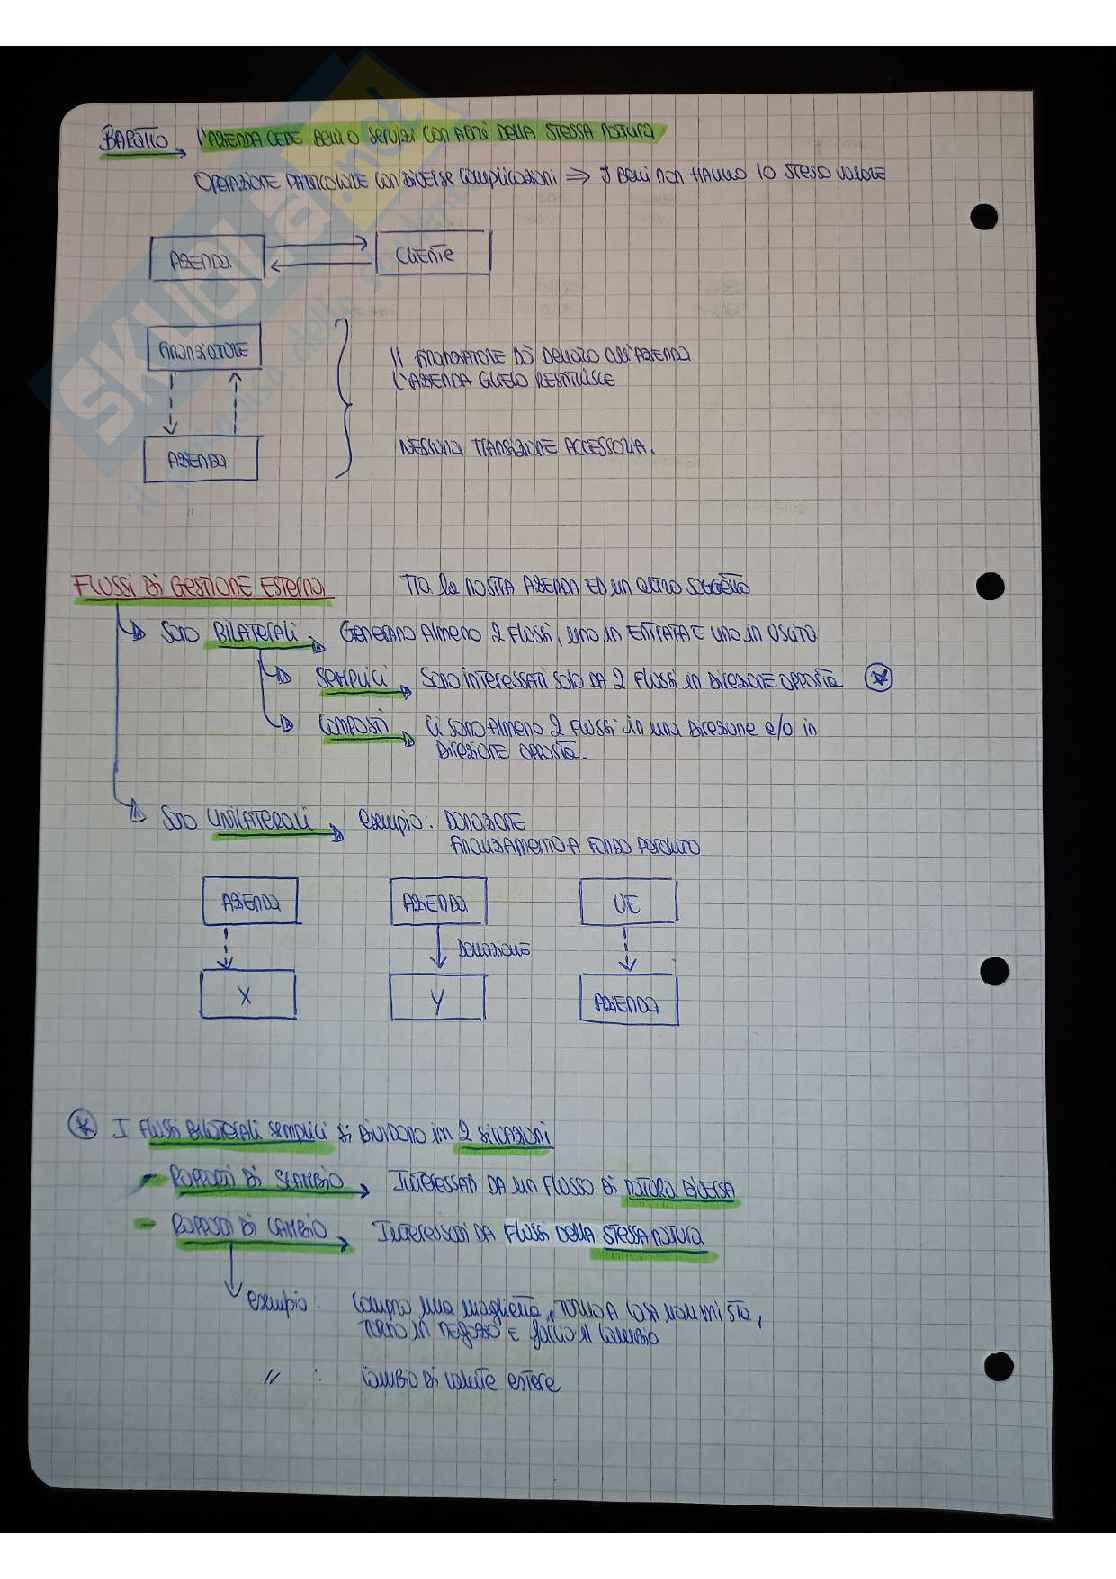 BARATTO → L'AZIENDA CEDE BENI O SERVIZI CON ALTRI DELLA STESSA NATURA
OPERAZIONE PARTICOLARE CON DIVERSE COMPLICAZIONI ⇒ I BENI NON HANNO LO STESSO VALORE
AZIENDA
CLIENTE
FINANZIATORE
IL FINANZIATORE DÀ DENARO ALL'AZIENDA
L'AZIENDA GLIELO RESTITUISCE
NESSUNA TRANSAZIONE ACCESSORIA.
AZIENDA
FLUSSI DI GESTIONE ESTERNA TRA la NOSTRA AZIENDA ED un altro SOGGETTO
Sono BILATERALI → GENERANO Almeno 2 Flussi, uno in ENTRATA E uno in USCITA
SEMPLICI → SONO INTERESSATI SOLO DA 2 FLUSSI in DIREZIONE OPPOSTA *
COMPOSTI → Ci sono Almeno 2 Flussi in una direzione e/o in
DIREZIONE OPPOSTA.
Sono UNILATERALI → esempio: DONAZIONE
FINANZIAMENTO A FONDO PERDUTO
AZIENDA
AZIENDA
UE
DONAZIONE
X
Y
AZIENDA
* I Flussi Bilaterali semplici si dividono in 2 situazioni
- RAPPORTI DI SCAMBIO → INTERESSATI DA un FLUSSO DI NATURA DIVERSA
- RAPPORTI DI CAMBIO → Interessati DA FLUSSI DELLA STESSA NATURA
esempio: Compro una maglietta, TORNO A CASA non mi sta,
TORNO in negozio e faccio il cambio
" : CAMBIO DI valute estere
SKUOLA.net